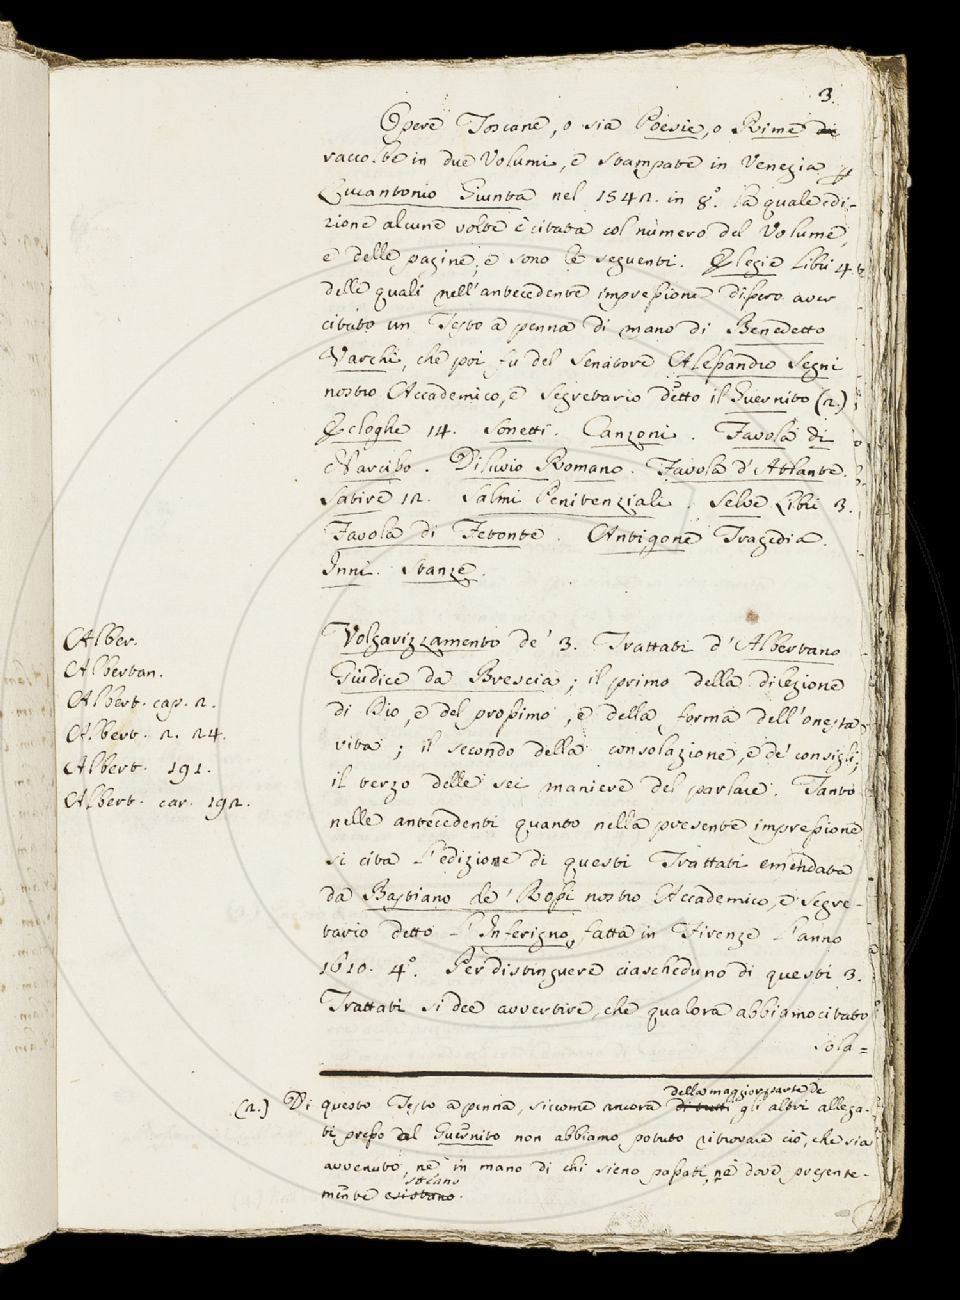 3.
Opere Toscane, o sia Poesie, o Rime di
raccolte in due Volumi, e stampate in Venezia p
Lucantonio Giunta nel 1542. in 8.° la quale edi-
zione alcune volte è citata col nùmero del Volume,
e delle pagine, e sono le seguenti. Elegie Libri 4.
delle quali nell'antecedente impressione dissero aver
citato un Testo a penna di mano di Benedetto
Varchi, che poi fu del Senatore Alessandro Segni
nostro Accademico, e Segretario detto il Guernito (2.)
Ecloghe 14. Sonetti. Canzoni. Favola di
Narcisso. Diluvio Romano. Favola d'Atlante.
Satire 12. Salmi Penitenziali. Selve Libri 3.
Favola di Fetonte. Antigone Tragedia.
Inni. Stanze.
Alber.
Albertan.
Albert. cap. 2.
Albert. 2. 24.
Albert. 191.
Albert. car. 192.
Volgarizzamento de' 3. Trattati d'Albertano
Giudice da Brescia; il primo della dilezione
di Dio, e del prossimo, e della forma dell'onesta
vita; il secondo della consolazione, e de' consigli;
il terzo delle sei maniere del parlare. Tanto
nelle antecedenti quanto nella presente impressione
si cita l'edizione di questi Trattati emendata
da Bastiano de' Rossi nostro Accademico, e Segre-
tario detto l'Inferigno, fatta in Firenze l'anno
1610. 4.° Per distinguere ciascheduno di questi 3.
Trattati si dee avvertire, che qualora abbiamo citato
sola=
della maggior parte de
(2.) Di questo Testo a penna, siccome ancora di tutti gli altri allega-
ti presso al Guernito non abbiamo potuto ritrovare ciò, che sia
avvenuto, nè in mano di chi sieno passati, nè dove presente-
mente esistano.